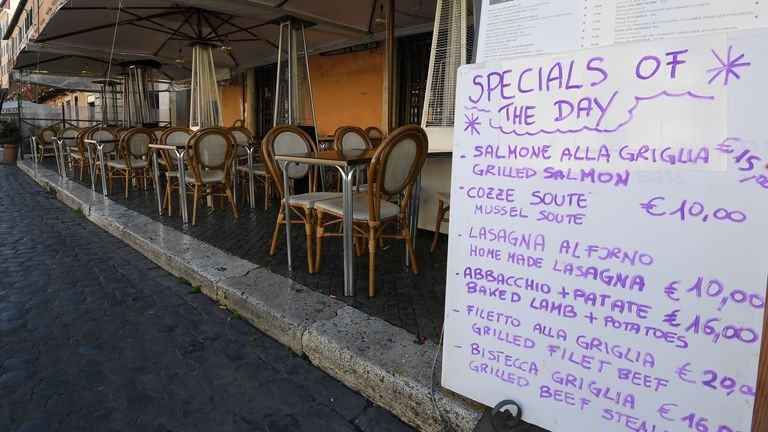 SPECIALS OF
THE DAY
- SALMONE ALLA GRIGLIA €15,
GRILLED SALMON
- COZZE SOUTE €10,00
MUSSEL SOUTE
- LASAGNA AL FORNO
HOME MADE LASAGNA €10,00
- ABBACCHIO + PATATE €16,00
BAKED LAMB + POTATOES
- FILETTO ALLA GRIGLIA €20,00
GRILLED FILET BEEF
- BISTECCA GRIGLIA €16,00
GRILLED BEEF STEAK